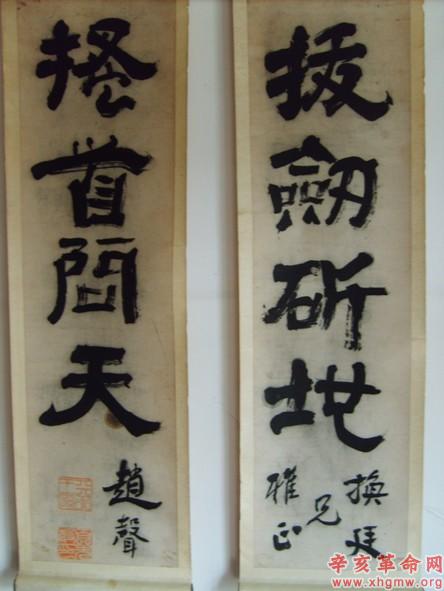 拔劍斫地
換廷
兄
雅正
搔首問天
趙聲
辛亥革命网
www.xhgmw.com